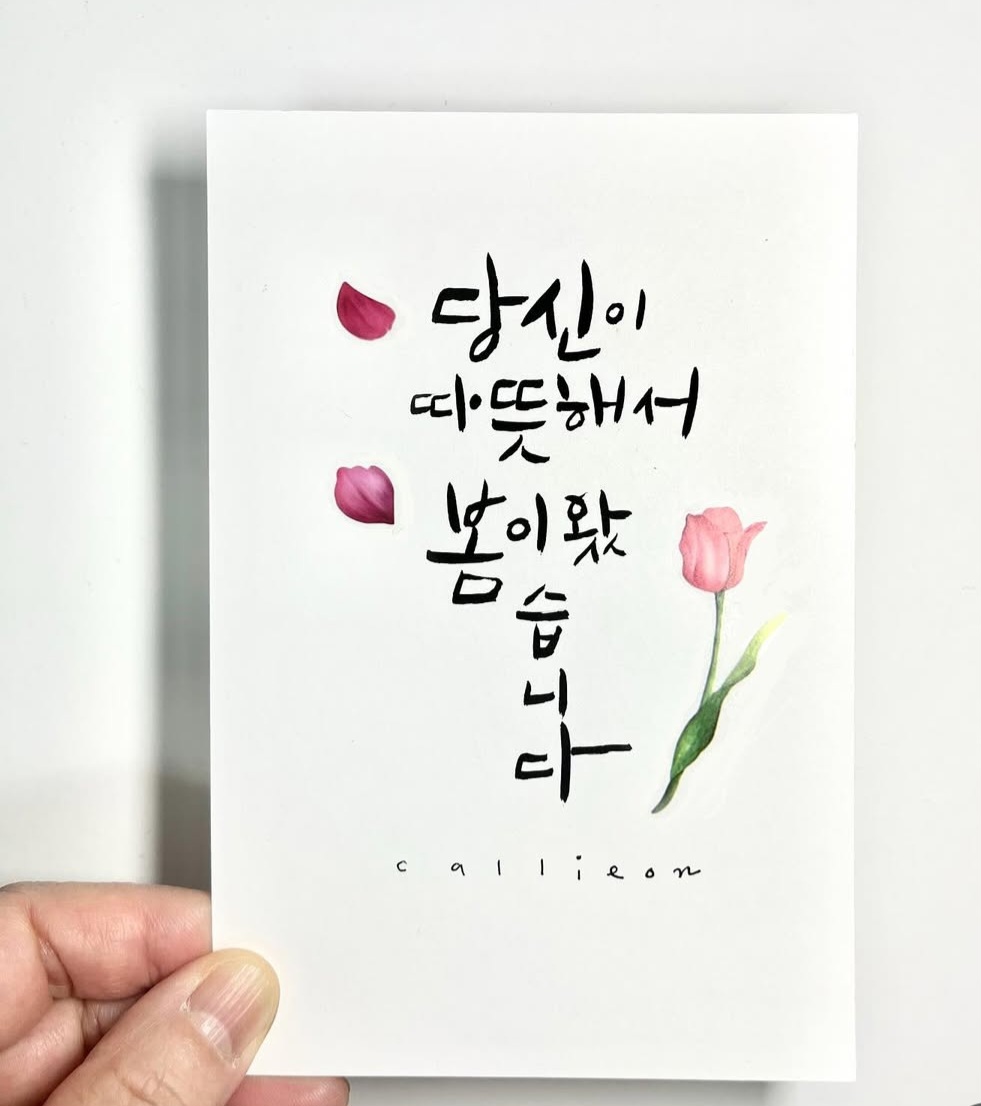 당신이
따뜻해서
봄이 왔
습
니
다
callieon